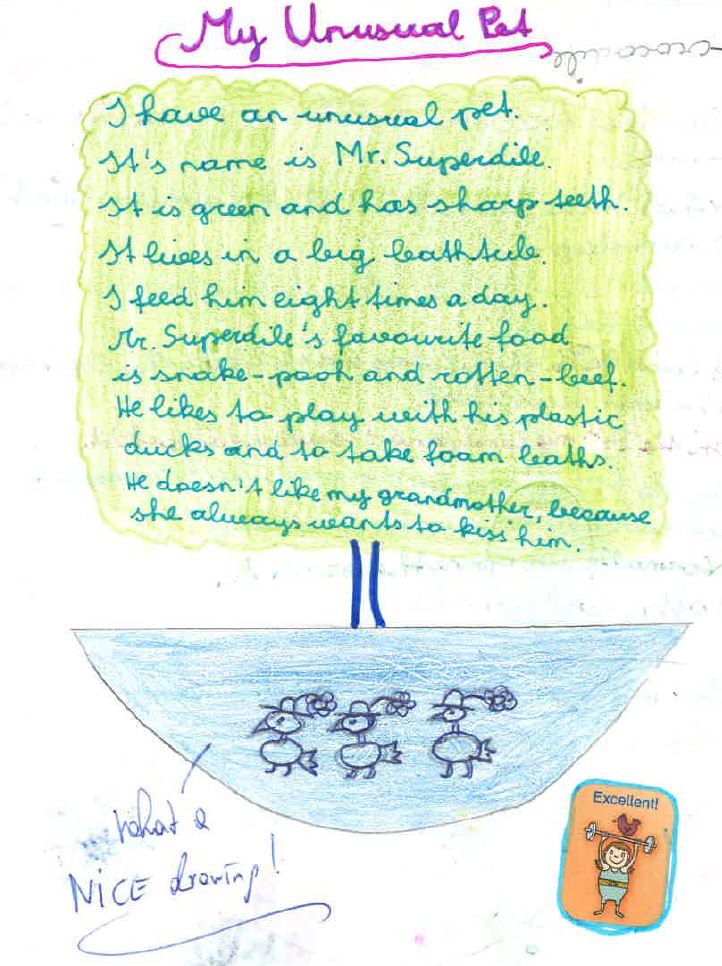 My Unusual Pet
crocodile
I have an unusual pet.
It's name is Mr. Superdile.
It is green and has sharp teeth.
It lives in a big bathtub.
I feed him eight times a day.
Mr. Superdile's favourite food
is snake-pooh and rotten-beef.
He likes to play with his plastic
ducks and to take foam baths.
He doesn't like my grandmother, because
she always wants to kiss him.
what a
NICE drawing!
Excellent!